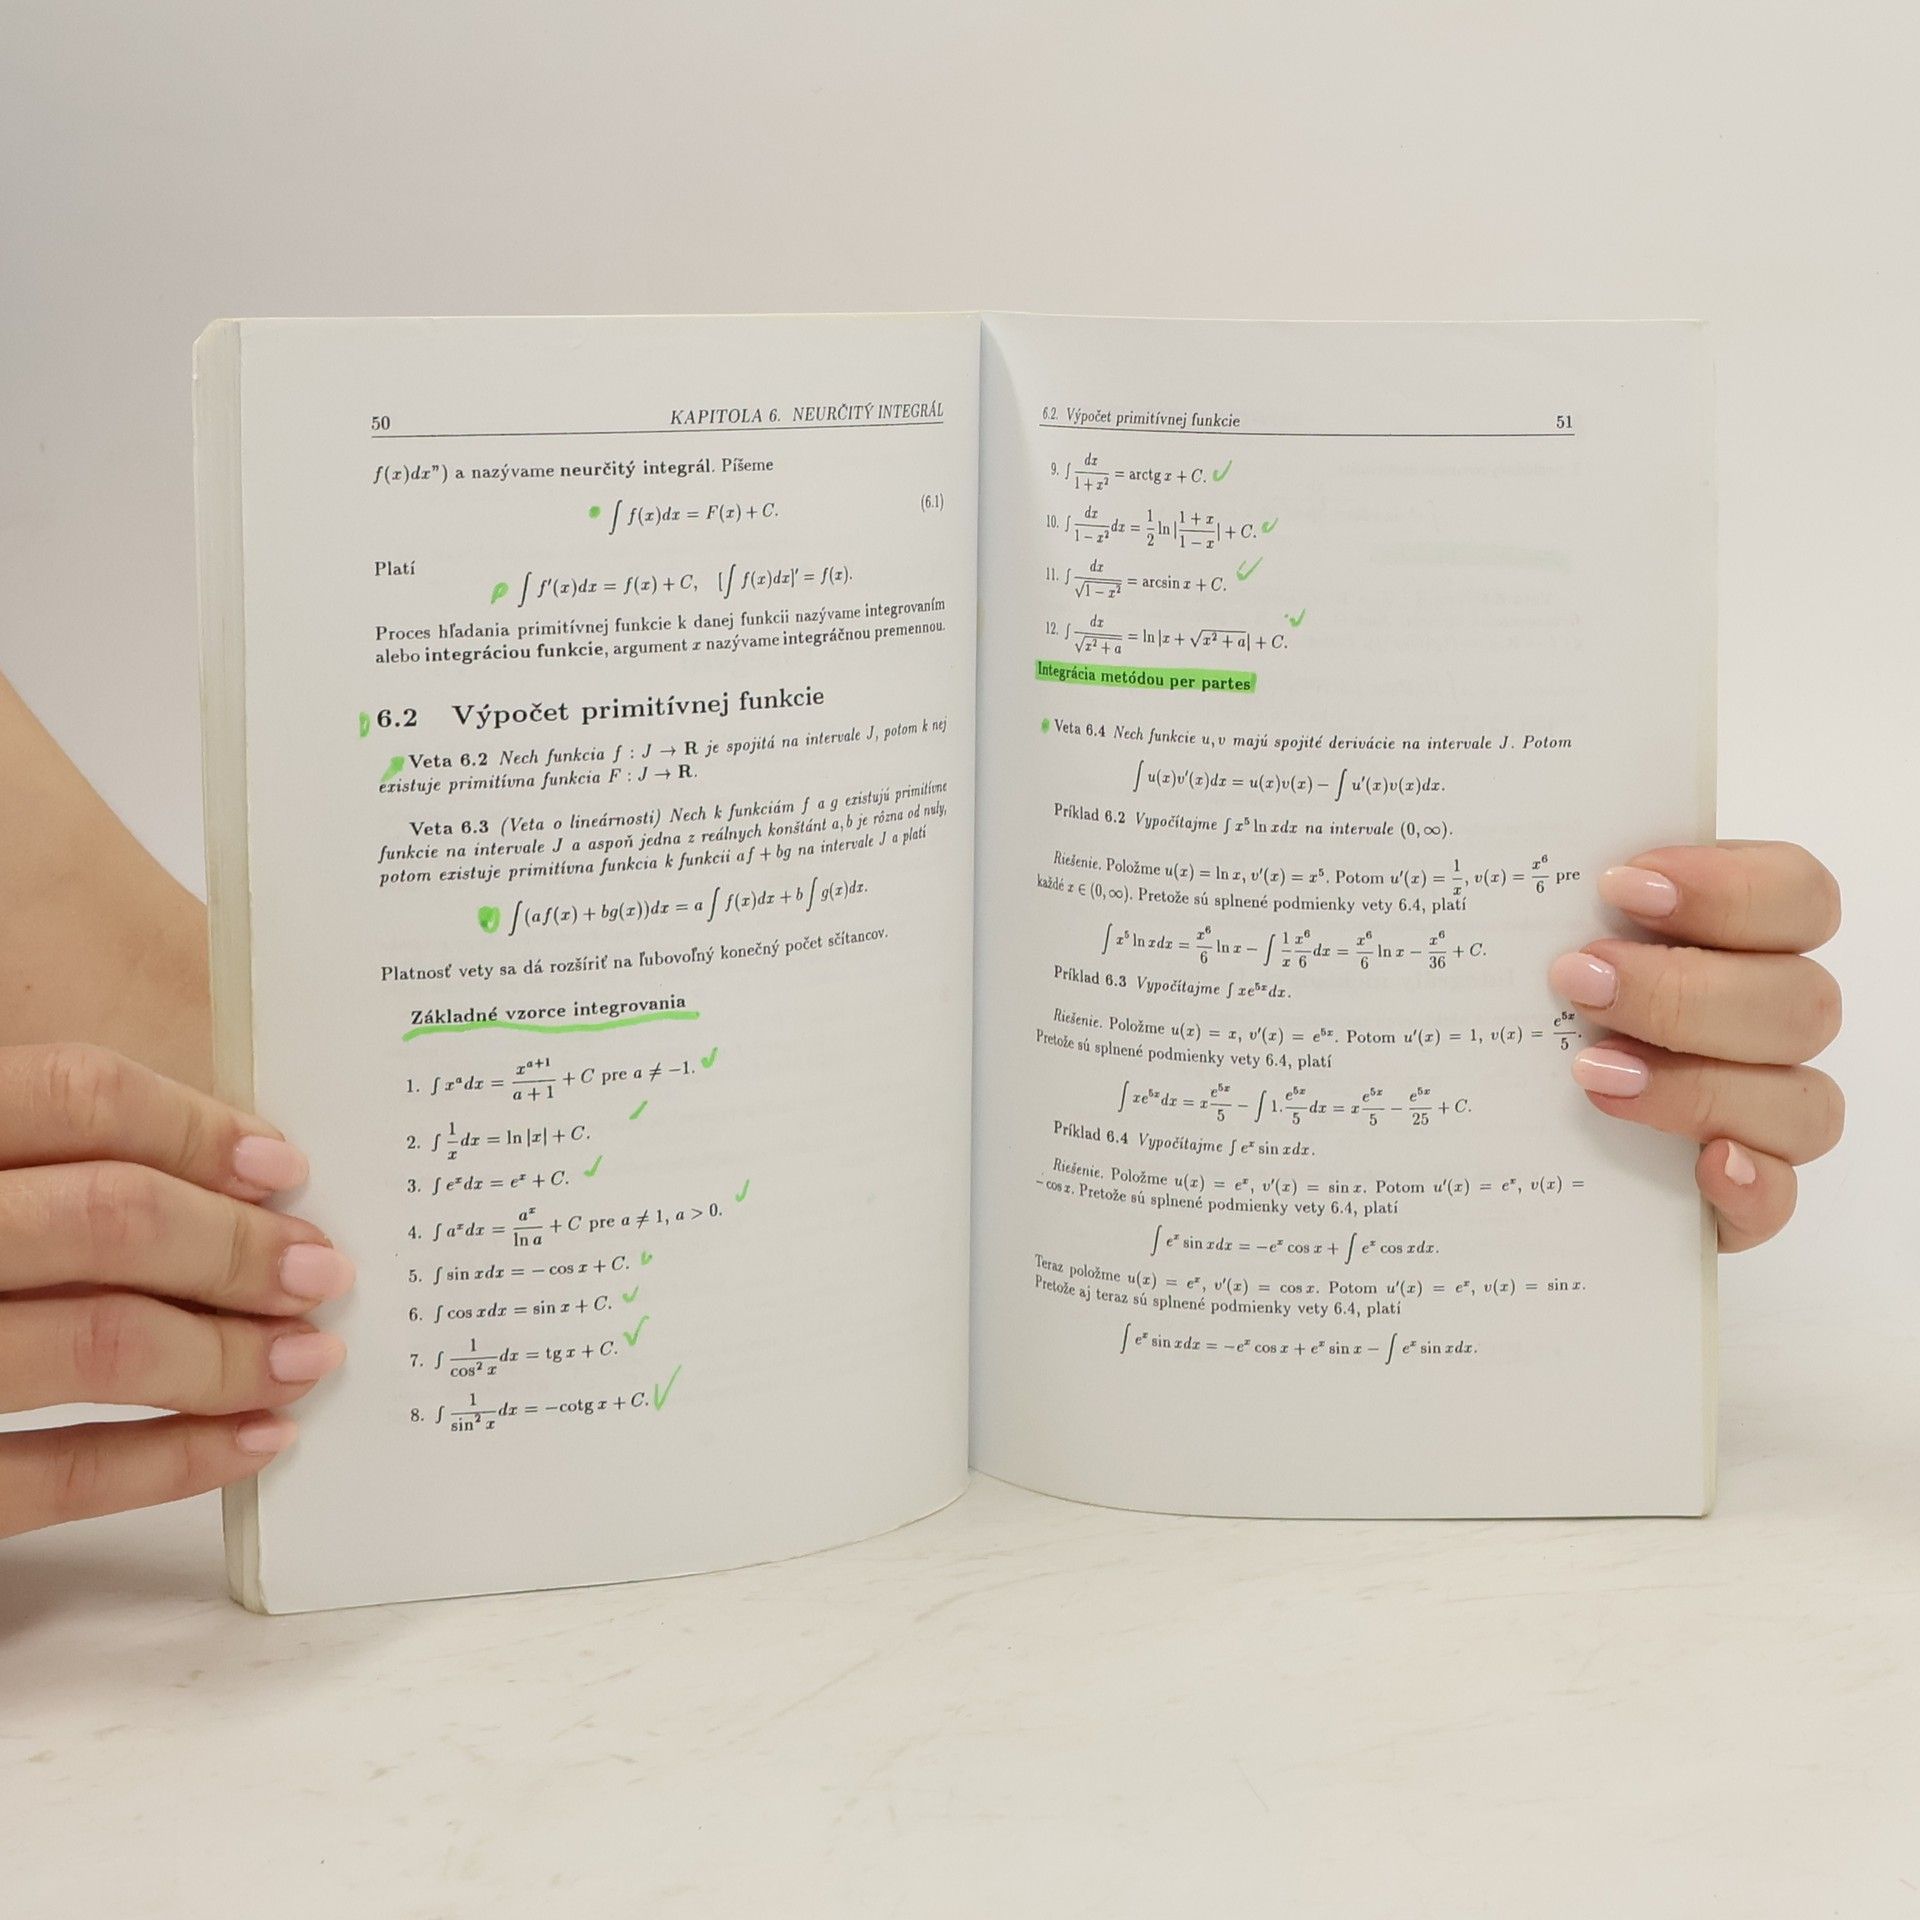 50 KAPITOLA 6. NEURČITÝ INTEGRÁL
f(x)dx") a nazývame neurčitý integrál. Píšeme
∫ f(x)dx = F(x) + C. (6.1)
Platí
∫ f'(x)dx = f(x) + C, [∫ f(x)dx]' = f(x).
Proces hľadania primitívnej funkcie k danej funkcii nazývame integrovaním
alebo integráciou funkcie, argument x nazývame integráčnou premennou.
6.2 Výpočet primitívnej funkcie
Veta 6.2 Nech funkcia f : J → R je spojitá na intervale J, potom k nej
existuje primitívna funkcia F : J → R.
Veta 6.3 (Veta o lineárnosti) Nech k funkciám f a g existujú primitívne
funkcie na intervale J a aspoň jedna z reálnych konštánt a, b je rôzna od nuly,
potom existuje primitívna funkcia k funkcii af + bg na intervale J a platí
∫(af(x) + bg(x))dx = a ∫ f(x)dx + b ∫ g(x)dx.
Platnosť vety sa dá rozšíriť na ľubovoľný konečný počet sčítancov.
Základné vzorce integrovania
1. ∫ x^a dx = x^{a+1}/(a+1) + C pre a ≠ −1.
2. ∫ 1/x dx = ln |x| + C.
3. ∫ e^x dx = e^x + C.
4. ∫ a^x dx = a^x/ln a + C pre a ≠ 1, a > 0.
5. ∫ sin xdx = − cos x + C.
6. ∫ cos xdx = sin x + C.
7. ∫ 1/cos² x dx = tg x + C.
8. ∫ 1/sin² x dx = −cotg x + C.
6.2. Výpočet primitívnej funkcie 51
9. ∫ dx/(1 + x²) = arctg x + C.
10. ∫ dx/(1 − x²) dx = 1/2 ln |(1 + x)/(1 − x)| + C.
11. ∫ dx/√(1 − x²) = arcsin x + C.
12. ∫ dx/√(x² + a) = ln |x + √(x² + a)| + C.
Integrácia metódou per partes
Veta 6.4 Nech funkcie u, v majú spojité derivácie na intervale J. Potom
∫ u(x)v'(x)dx = u(x)v(x) − ∫ u'(x)v(x)dx.
Príklad 6.2 Vypočítajme ∫ x⁵ ln xdx na intervale (0, ∞).
Riešenie. Položme u(x) = ln x, v'(x) = x⁵. Potom u'(x) = 1/x, v(x) = x⁶/6 pre
každé x ∈ (0, ∞). Pretože sú splnené podmienky vety 6.4, platí
∫ x⁵ ln xdx = x⁶/6 ln x − ∫ 1/x x⁶/6 dx = x⁶/6 ln x − x⁶/36 + C.
Príklad 6.3 Vypočítajme ∫ xe^{5x}dx.
Riešenie. Položme u(x) = x, v'(x) = e^{5x}. Potom u'(x) = 1, v(x) = e^{5x}/5.
Pretože sú splnené podmienky vety 6.4, platí
∫ xe^{5x}dx = x e^{5x}/5 − ∫ 1. e^{5x}/5 dx = x e^{5x}/5 − e^{5x}/25 + C.
Príklad 6.4 Vypočítajme ∫ e^x sin xdx.
Riešenie. Položme u(x) = e^x, v'(x) = sin x. Potom u'(x) = e^x, v(x) =
− cos x. Pretože sú splnené podmienky vety 6.4, platí
∫ e^x sin xdx = −e^x cos x + ∫ e^x cos xdx.
Teraz položme u(x) = e^x, v'(x) = cos x. Potom u'(x) = e^x, v(x) = sin x.
Pretože aj teraz sú splnené podmienky vety 6.4, platí
∫ e^x sin xdx = −e^x cos x + e^x sin x − ∫ e^x sin xdx.